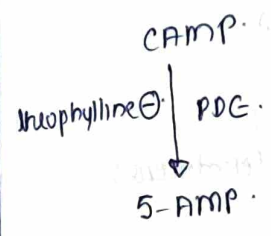 CAMP.
theophylline⊖ PDE.
5-AMP.